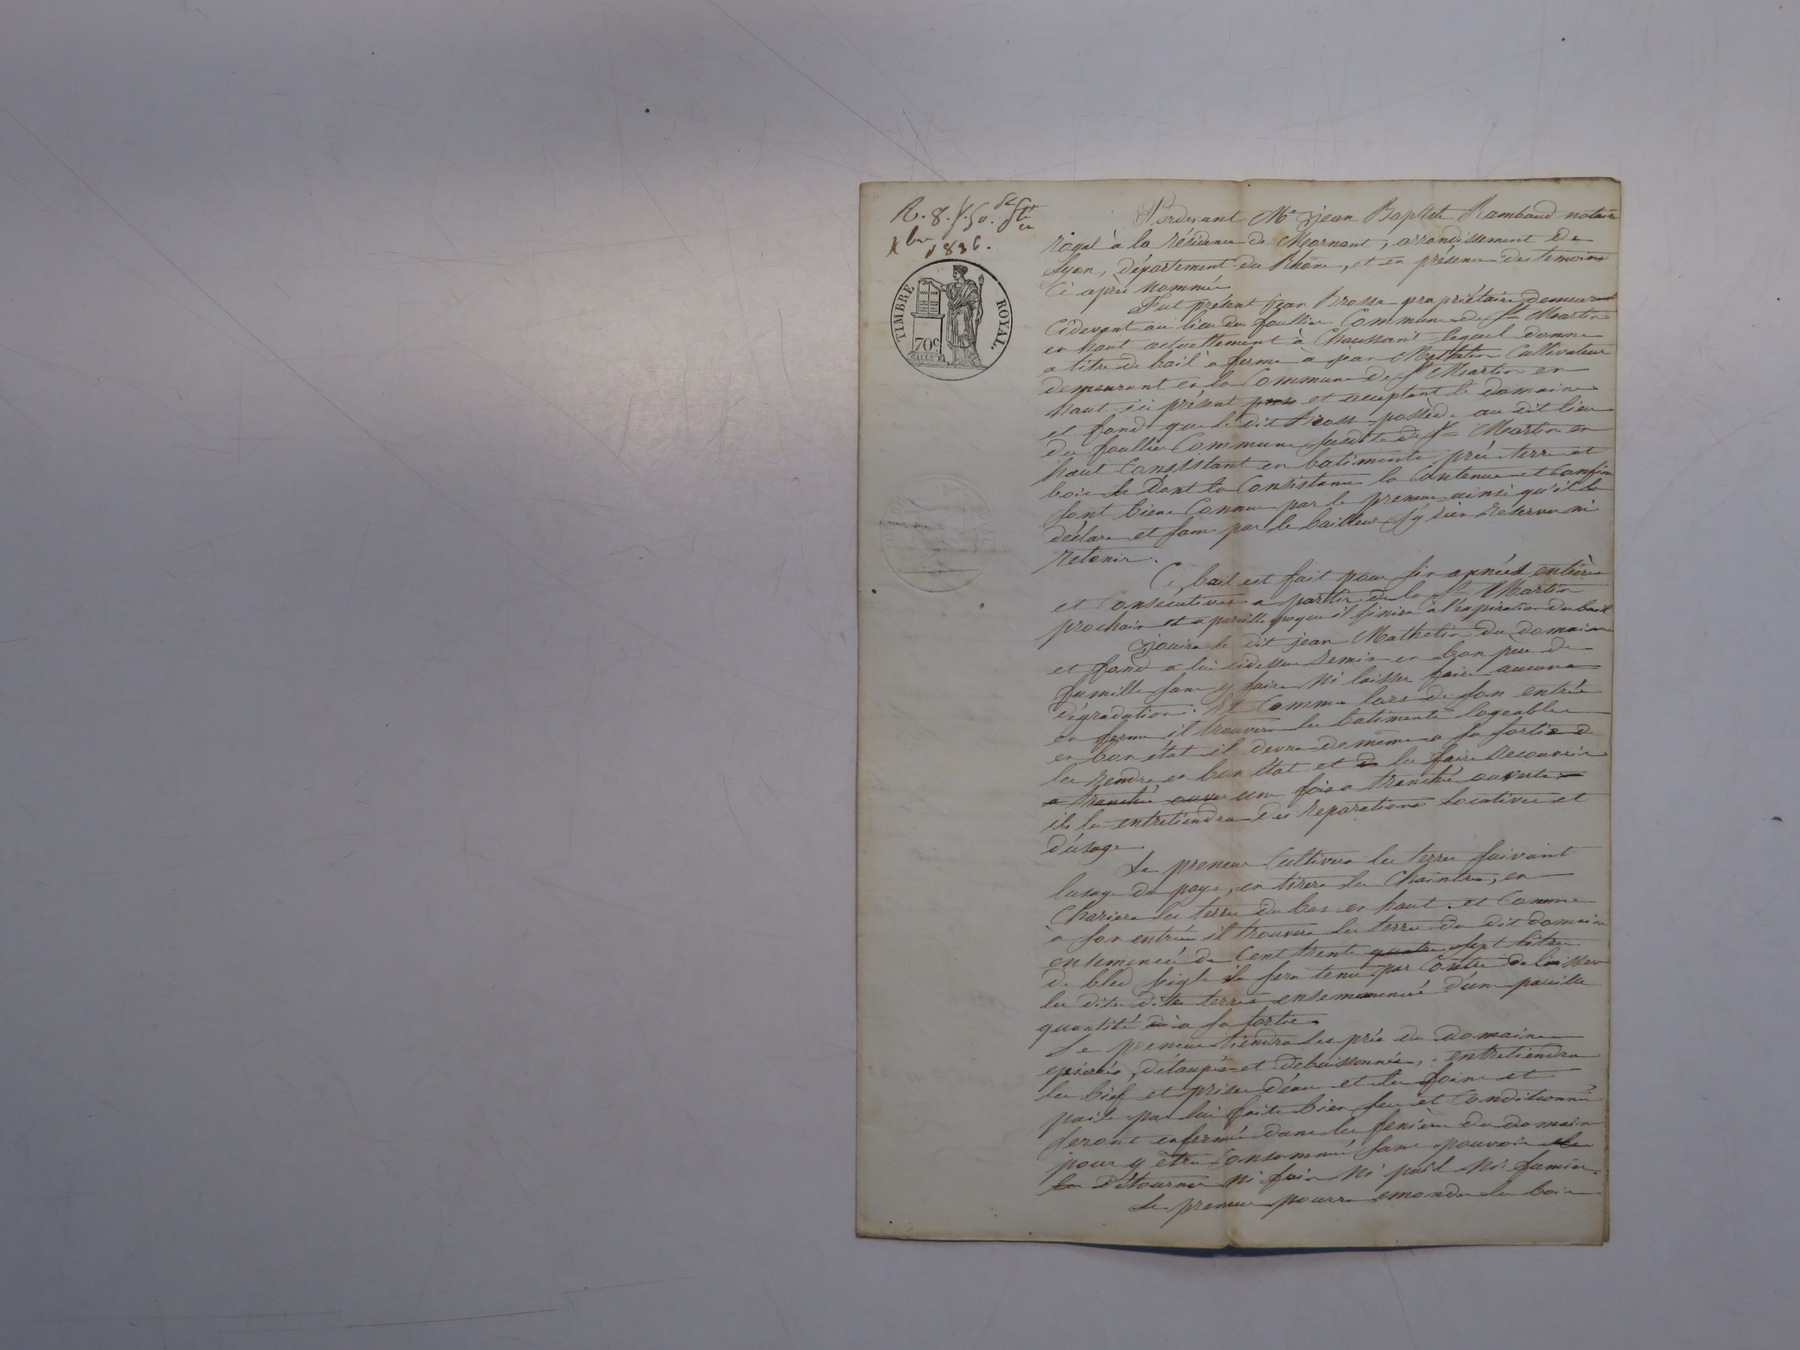 R. 8. f. 50.
Xbre 1836.
TIMBRE ROYAL.
70c
Pardevant Me Jean Baptiste Rambaud notaire
royal à la résidence de Mornant, arrondissement de
Lyon, département du Rhône, et en présence des temoins
Ci après nommés
Fut présent Jean Brosse propriétaire demeurant
Cidevant au lieu du foultier Commune de St Martin
en haut actuellement à Chaussant lequel donne
a titre de bail à ferme à jean Mathelin Cultivateur
demeurant en la Commune de St Martin en
haut ici présent et acceptant le domaine
et fond que le dit Brosse possède au dit lieu
du foultier Commune susdite de St Martin en
haut Consistant en batiments prés terre et
bois Dont la Consistance la Contenue et Confins
sont bien Connu par le preneur ainsi qu'il le
déclare et sans par le bailleur s'y rien réserver ni
retenir.
Ce bail est fait pour six années entières
et Consécutives a partir de la St Martin
prochain et a pareille époque il finira à l'expiration du bail
Jouira le dit jean Mathelin du domaine
et fond a lui cidessus remis en bon père de
famille sans y faire ni laisser faire aucune
dégradation. Et Comme lors de son entrée
en ferme il trouvera les batiments logeables
en bon état il devra de même a sa sortie de
les rendre en bon état et de les faire recouvrir
a tranché ouver une fois a tranché ouverte
il les entretiendra des reparations locatives et
d'usage.
Le preneur Cultivera les terres suivant
lusage du pays, en tirera les Chaintres, en
Chariera les terres du bas en haut. et Comme
à son entrée il trouvera les terres du dit domaine
ensemencé de Cent trente quatre sept litres
de bled seigle il sera tenu par Contre de laisser
les dites dite terres ensemmencé d'une pareille
quantité à sa sortie.
Le preneur tiendra les prés du domaine
épierrés, détaupés et debuissonnés, entretiendra
les bief et prises d'eau et les foins et
paille par lui faite bien sec et Conditionné
seront enfermés dans les fenière du domaine
pour y être Consommé sans pouvoir
détourner ni foin ni pail ni fumier.
Le preneur pourra emonder les bois